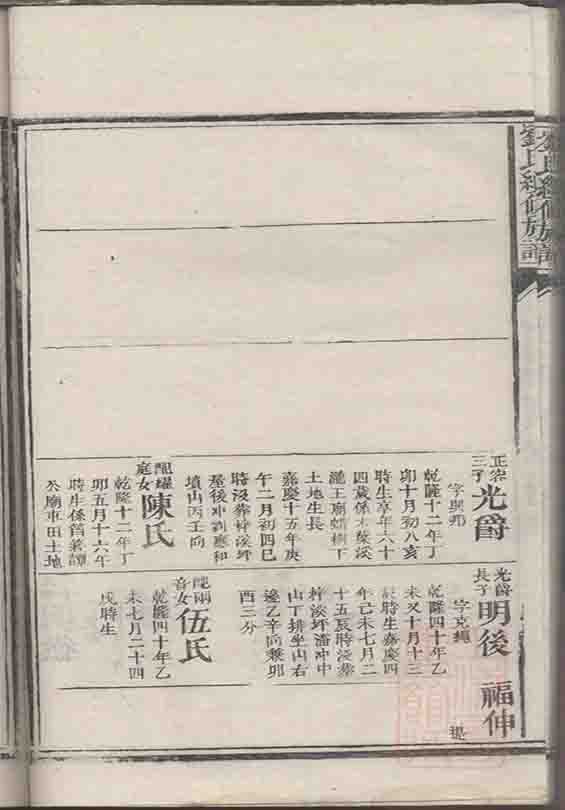 劉氏續修族譜
正容三子
光爵
字與邦
乾隆十二年丁
卯十月初八亥
時生享年六十
四歲係木
土地生長
嘉慶十五年庚
午二月初四巳
時沒葬梓溪坪
屋後冲劉應和
墳山丙壬向
配耀庭女
陳氏
乾隆十二年丁
卯五月十六午
時生係舊
公廟車田土地
光爵長子
明後
字克繩
乾隆四十年乙
未又十月十三
時生嘉慶四
年己未七月二
十五辰時沒葬
梓溪坪潘冲中
山丁排坐山右
邊乙辛向兼卯
酉三分
配兩音女
伍氏
乾隆四十年乙
未七月二十四
戌時生
福伸